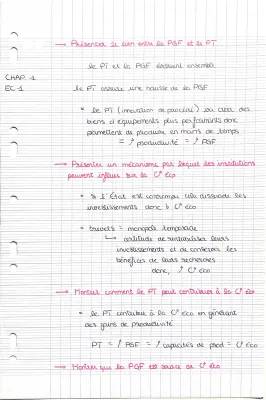 → Présenter le lien entre la PGF et le PT
le PT et la PGF évoluent ensemble
CHAP. 1
EC 1
le PT assure une hausse de la PGF
* le PT (innovation de procédé) va créer des
biens d'équipements plus performants donc
permettent de produire en moins de temps
= ↑ productivité = ↑ PGF
→ Présenter un mécanisme par lequel les institutions
peuvent influer sur la C° éco
* si l'État est corrompu, cela dissuade les
investissements donc ↓ C° éco
* brevets = monopole temporaire
↳ certitude de rentabiliser leurs
investissements et de conserver les
bénéfices de leurs recherches
donc, ↑ C° éco
→ Montrer comment le PT peut contribuer à la C° éco
* le PT contribue à la C° éco en générant
des gains de productivité
PT = ↑ PGF = ↑ capacités de prod = C° éco
→ Montrer que la PGF est source de C° éco